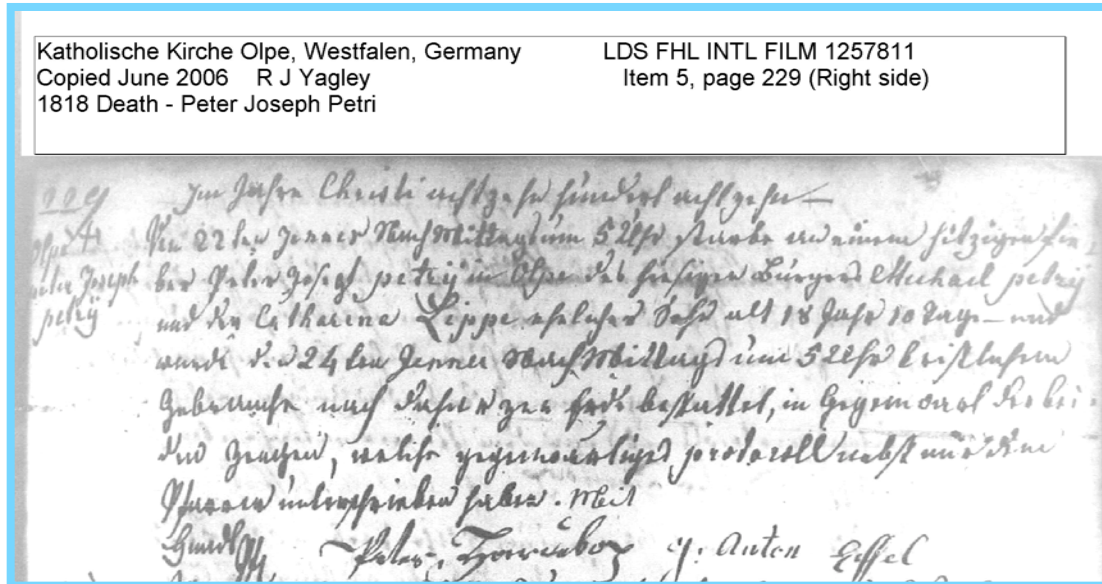 Katholische Kirche Olpe, Westfalen, Germany LDS FHL INTL FILM 1257811
Copied June 2006 R J Yagley Item 5, page 229 (Right side)
1818 Death - Peter Joseph Petri
229 Im Jahre Christi achtzehn hundert achtzehn
Olpe Den 22ten Jenner NachMittags um 5 Uhr starbe an einem hitzigen Fie-
Peter Joseph ber Peter Joseph petrÿ in Olpe des hiesigen Bürgers Michael petrÿ
petrÿ und der Catharina Lippe ehelicher Sohn alt 18 Jahr 10 Tage – und
wurde den 24ten Jenner NachMittags um 5 Uhr Kristlichem
Gebrauche nach daher zur Erde bestattet, in Gegenwart der bei-
den Zeugen, welche gegenwärtiges protocoll nebst mir dem
Pfarrer unterschrieben haben. Mit
Peter Anton